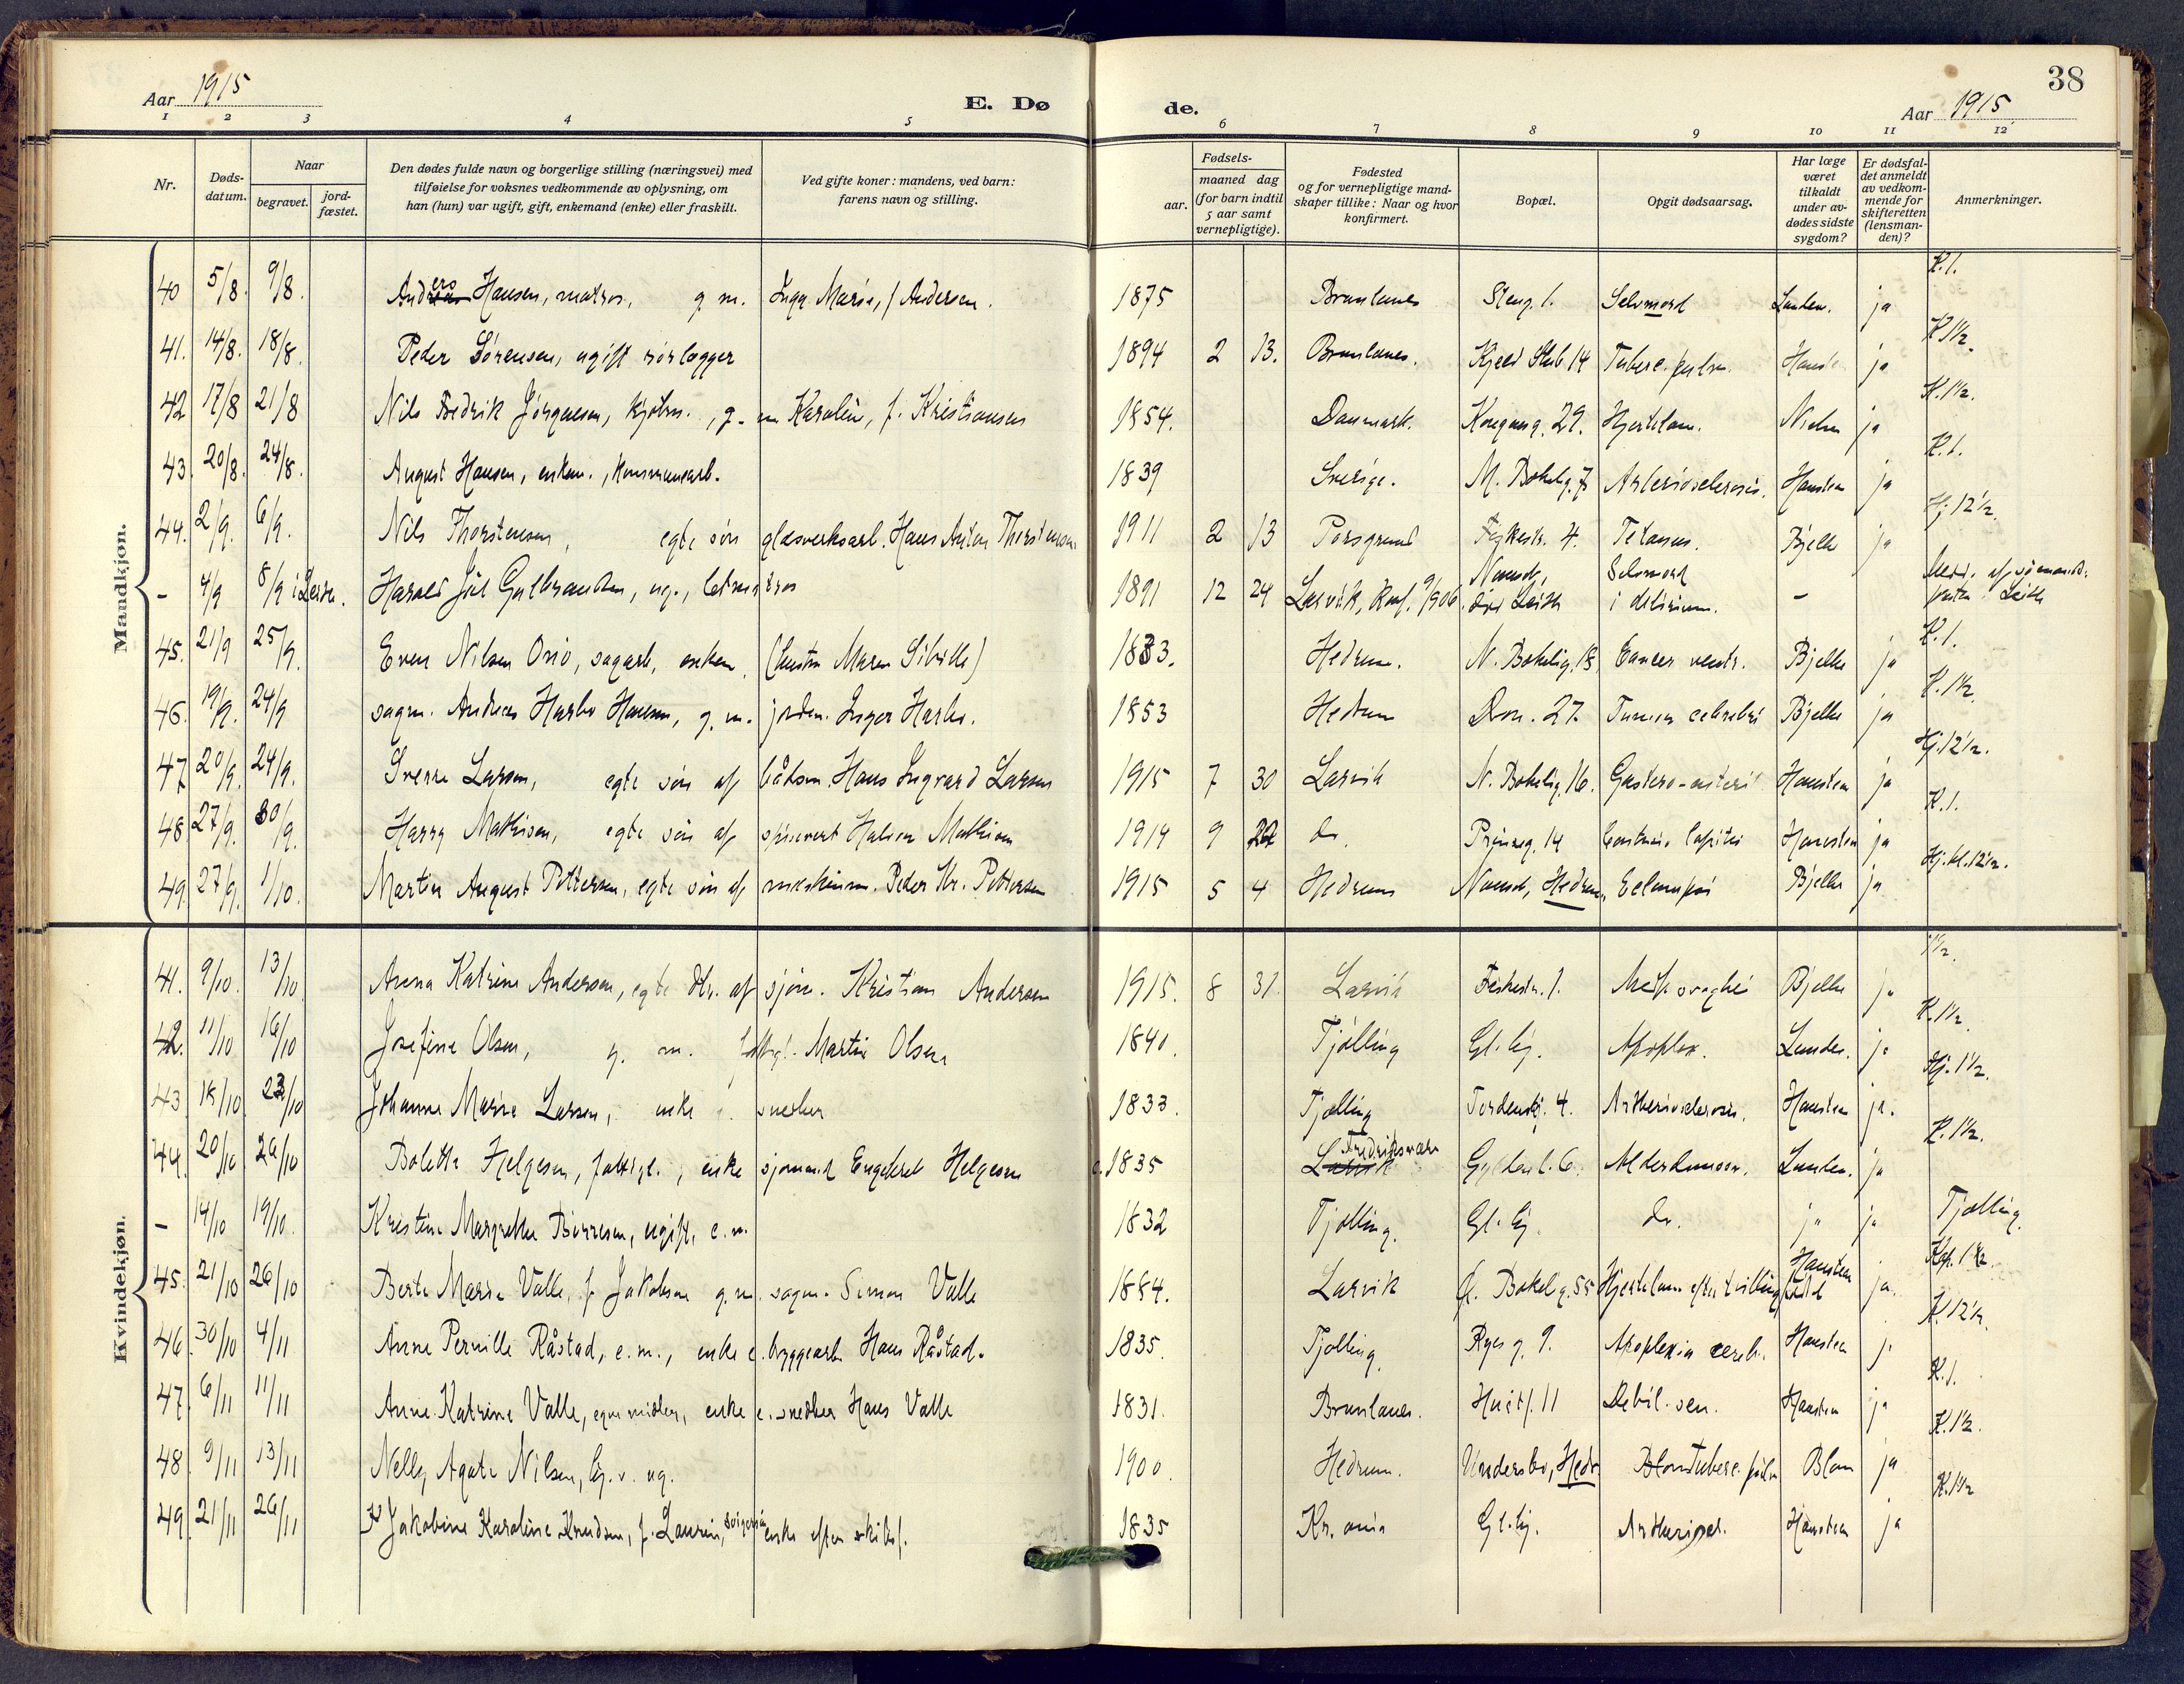 Aar 1915
E. Døde.
Aar 1915
38
1 2 3 4 5 6 7 8 9 10 11 12
Nr.
Døds-datum.
Naar
begravet.
jord-fæstet.
Den dødes fulde navn og borgerlige stilling (næringsvei) med
tilføielse for voksnes vedkommende av oplysning, om
han (hun) var ugift, gift, enkemand (enke) eller fraskilt.
Ved gifte koner: mandens, ved barn:
farens navn og stilling.
Fødsels-
aar.
maaned dag
(for barn indtil
5 aar samt
vernepligtige).
Fødested
og for vernepligtige mand-
skaper tillike: Naar og hvor
konfirmert.
Bopæl.
Opgit dødsaarsag.
Har læge
været
tilkaldt
under av-
dødes sidste
sygdom?
Er dødsfal-
det anmeldt
av vedkom-
mende for
skifteretten
(lensman-
den)?
Anmerkninger.
Mandkjøn.
40 5/8. 9/8. Anders Hansen, matros, g. m. Inga Marie, f. Andersen. 1875 Brunlanes Steng. 1. Selvmord Lunden. ja K. 1.
41. 14/8. 18/8. Peder Sørensen, ugift rørlægger 1894 2 13. Brunlanes. Kjeld Stub. 14 Tuberc. pulm. ja K 1½.
42 17/8 21/8 Nils Fredrik Jørgensen, kjøbm., g. m Karoline, f. Kristiansen 1854. Danmark. Kongensg. 29. Hjertelam. Nielsen ja K. 1½.
43. 20/8. 24/8. August Hansen, enkem., kommunearb. 1839 Sverige. M. Bøkelig. 7 Arteriosclerosis. Hansteen ja K. 1.
44. 2/9. 6/9. Nils Thorstensen, egte søn glasverksarb. Hans Anton Thorstensen 1911 2 13 Porsgrund Fiskestr. 4. Tetanus. Bjelke ja Hj. 12½.
- 4/9 8/9 i Leith. Harald Juel Gulbrandsen, ug., letmatros 1891 12 24 Larvik, Konf. 9/1906. Leith Selvmord i delirium. - Medd. af sjømands- Leith
45. 21/9 25/9. Even Nilsen Osnø, sagarb., enkem. (hustru Maren Sibille) 1833. Hedrum. N. Bøkelig. 18, Cancer ventr. Bjelke ja K. 1.
46. 19/9. 24/9 sagm. Andreas Harbo Hansen, g. m. jordm. Inger Harbo. 1853 Hedrum Dron. 27. Tumor cerebri Bjelke ja K. 1½.
47 20/9. 24/9. Sverre Larsen, egte søn af bådsm. Hans Ingvard Larsen 1915 7 30 Larvik N. Bøkelig. 16. Gastero-enterit Hansteen ja Hj. 12½.
48. 27/9. 30/9. Harry Mathisen, egte søn af spisevert Halvor Mathisen 1914 9 22 do. Prinseg. 14 Contusio capitis Hansteen ja K. 1.
49. 27/9. 1/10. Martin August Pettersen, egte søn af maskinm. Peder Kr. Pettersen 1915 5 4 Hedrum Hedrum. Eclampsi Bjelke ja Hj. kl. 12½.
Kvindekjøn.
41. 9/10. 13/10 Anna Katrine Andersen, egte dtr. af sjøm. Kristian Andersen 1915. 8 31. Larvik Fiskestr. 1. Bjelke ja 1½.
42. 11/10 16/10 Josefine Olsen, g. m. Martin Olsen 1840. Tjølling Gl. hj. Apoplex. Lunden. ja K. 1½.
43 18/10 23/10 Johanne Marie Larsen, enke snedker 1833. Tjølling Tordenskj. 4. Artheriosclerosis. Hansteen ja. Hj. 1½.
44. 20/10 26/10 Bolette Helgesen, fattigl., enke sjømand Engebret Helgesen c. 1835 Larvik Fredriksværn Gyldenl. 6. Alderdomssv. Lunden. ja K. 1½.
- 14/10 19/10. Kristine Margrethe Børresen, ugift, e. m. 1832 Tjølling. Gl. hj. do. ja ja Tjølling.
45. 21/10 26/10 Berte Marie Valle, f. Jakobsen g. m. sagm. Simon Valle 1884. Larvik Ø. Bøkelg. 55 Hjertelam. efter tvillingfødsel Hansteen ja. Kap. 1½.
46. 30/10 4/11 Anne Pernille Råstad, e. m., enke e. byggearb. Hans Råstad. 1835. Tjølling. Ryes g. 9. Apoplexia cereb. Hansteen j. K. 12½.
47. 6/11 11/11 Anne Katrine Valle, egne midler, enke e. snedker Hans Valle 1831. Brunlanes. Huitf. 11 Debil. sen. Hansteen ja K. 1.
48. 9/11 13/11 Nelly Agate Nilsen, hj. v. ug. 1900. Hedrum. Undersbo, Hedr. Tuberc. pulm Blom ja K. 1½.
49. 21/11 26/11 Jakobine Karoline Knudsen, f. Laurin, enke efter skibsf. 1835 Kr.ania Gl. hj. Artheriosel. Hansteen ja K. 1½